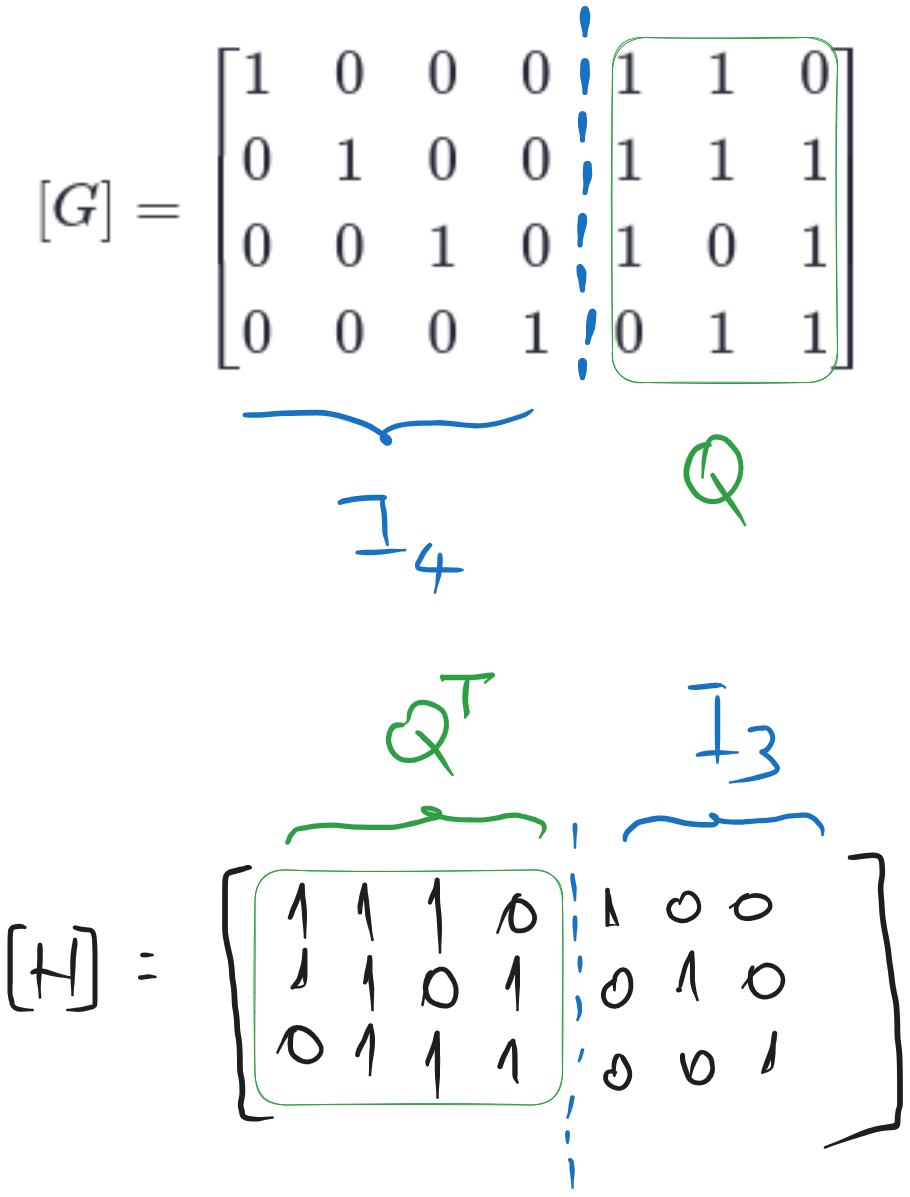 1 0 0 0 1 1 0
0 1 0 0 1 1 1
[G] =
0 0 1 0 1 0 1
0 0 0 1 0 1 1
I4
Q
Q^T
I3
1 1 1 0 1 0 0
[H] = 1 1 0 1 0 1 0
0 1 1 1 0 0 1